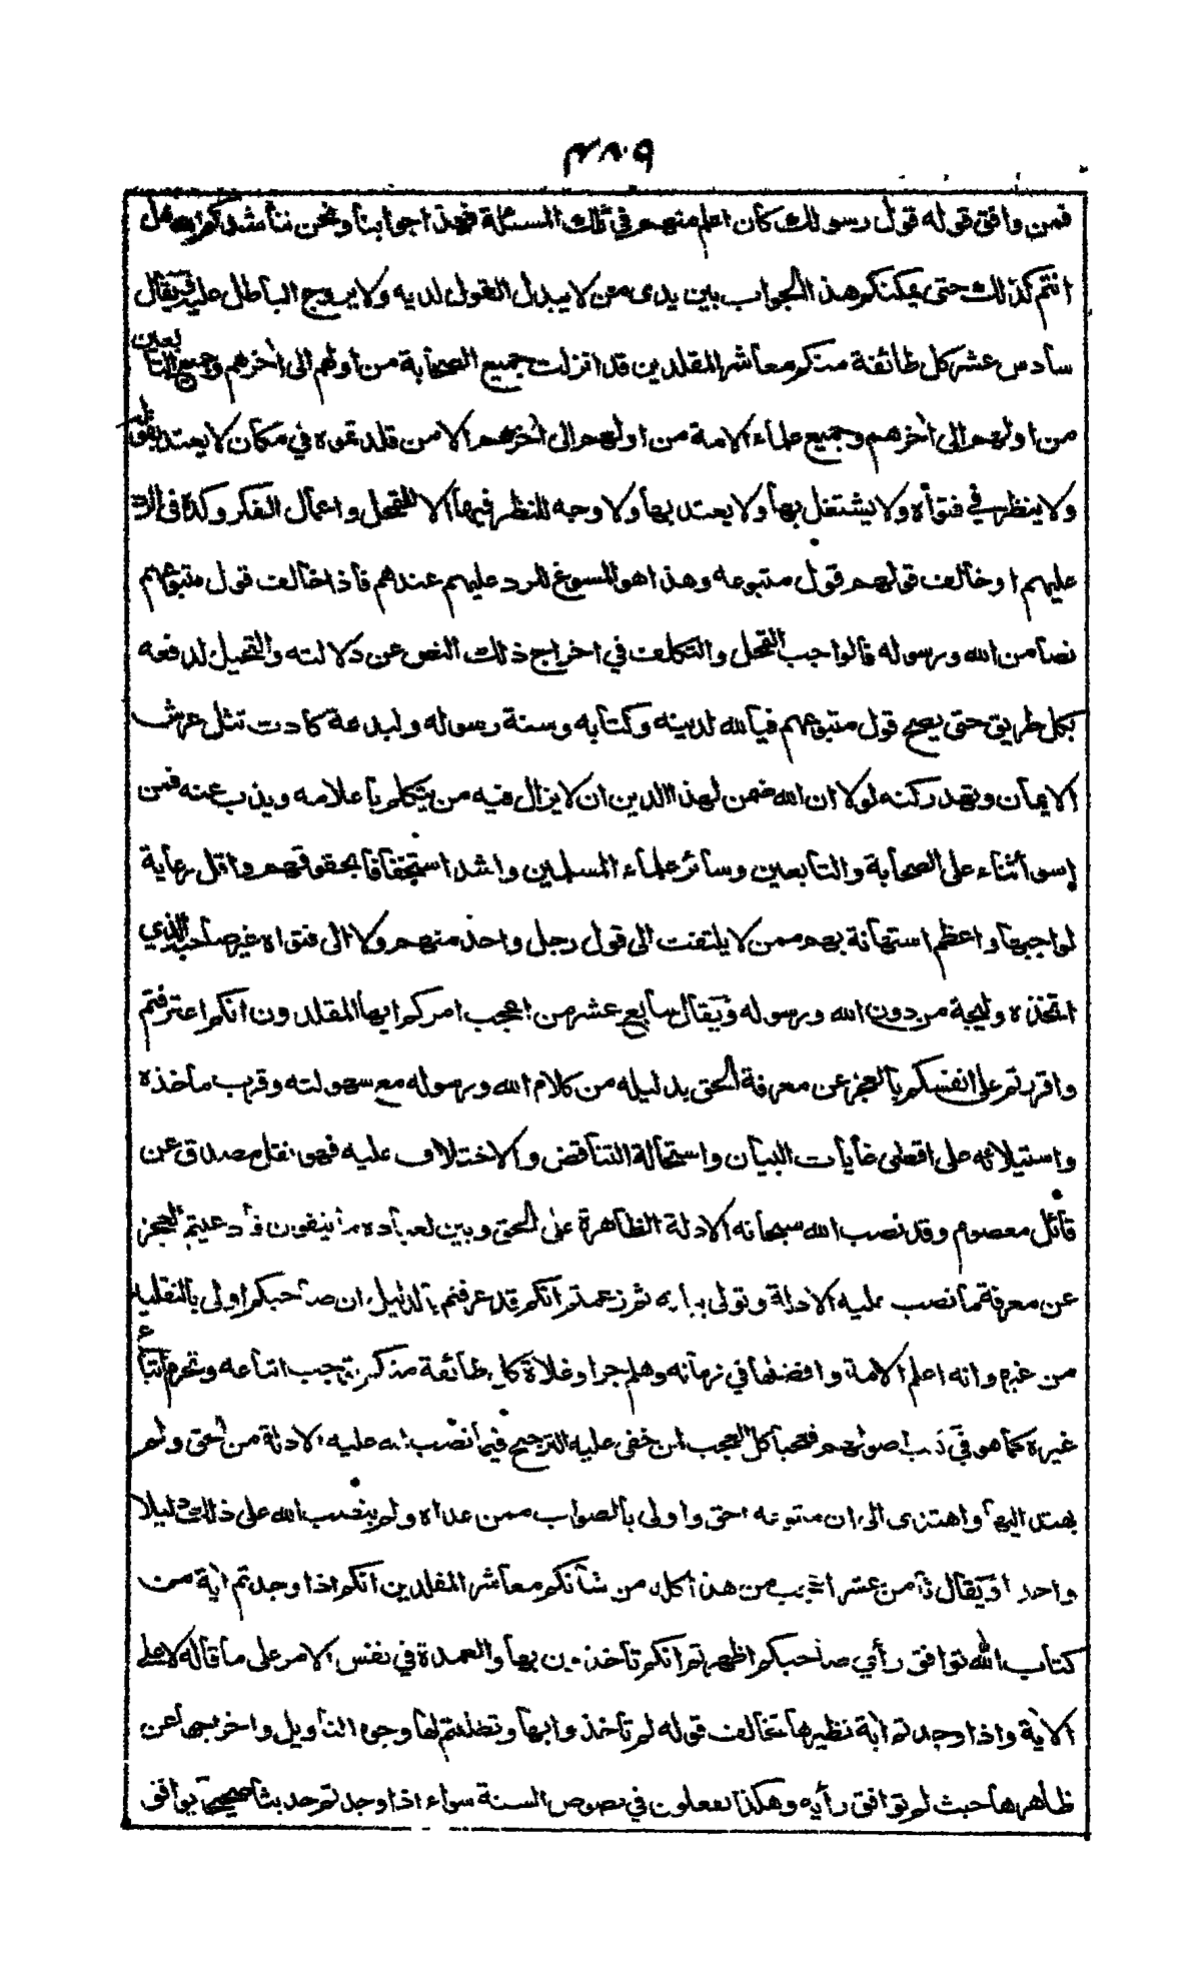 ٢٨٠٩
فمن وافق قوله قول رسولك كان اعلم منهم في تلك المسئلة فهذا جوابنا ونحن نناشدكم الله هل
انتم كذلك حتى يمكنكم هذا الجواب بين يدى من لا يبدل القول لديه ولا يروج الباطل عليه ويقال
سادس عشر كل طائفة منكم معاشر المقلدين قد انزلت جميع الصحابة من اولهم الى اخرهم وجميع التابعين
من اولهم الى اخرهم وجميع علماء الامة من اولهم الى اخرهم الا من قلدتموه في مكان لا يعتد بقوله
ولا ينظر في فتواه ولا يشتغل بها ولا يعتد بها ولا وجه للنظر فيها الا للتمحل واعمال الفكر وكده في الرد
عليهم اذا خالف قولهم قول متبوعه وهذا هو المسوغ للرد عليهم عندهم فاذا خالف قول متبوعهم
نصا من الله ورسوله فالواجب التمحل والتكلف في اخراج ذلك النص عن دلالته والتحيل لدفعه
بكل طريق حتى يصح قول متبوعهم فيالله لدينه وكتابه وسنة رسوله ولبدعة كادت تثل عرش
الايمان وتهد ركنه لولا ان الله ضمن لهذا الدين ان لا يزال فيه من يتكلم باعلامه ويذب عنه فمن
اسوأ ثناء على الصحابة والتابعين وسائر علماء المسلمين واشد استخفافا بحقوقهم واقل رعاية
لواجبها واعظم استهانة بهم ممن لا يلتفت الى قول رجل واحد منهم ولا الى فتواه غير صاحبه الذي
اتخذه وليجة من دون الله ورسوله ويقال سابع عشر من اعجب امركم ايها المقلدون انكم اعترفتم
واقررتم على انفسكم بالعجز عن معرفة الحق بدليله من كلام الله ورسوله مع سهولته وقرب ماخذه
واستيلائه على اقصى غايات البيان واستحالة التناقض والاختلاف عليه فهو نقل مصدق عن
قائل معصوم وقد نصب الله سبحانه الادلة الظاهرة على الحق وبين لعباده ما يتقون فادعيتم العجز
عن معرفة ما نصب عليه الادلة وتولى بيانه ثم زعمتم انكم قد عرفتم بالدليل ان صاحبكم اولى بالتقليد
من غيره وانه اعلم الامة وافضلها في زمانه وهلم جرا وغلاة كل طائفة منكم توجب اتباعه وتحرم اتباع
غيره كما هو في كتب اصولهم فعجبا كل العجب لمن خفى عليه الترجيح فيما نصب الله عليه الادلة من الحق ولم
يهتد اليها واهتدى الى ان متبوعه احق واولى بالصواب ممن عداه ولم ينصب الله على ذلك دليلا
واحدا ويقال ثامن عشر اعجب من هذا كله من شأنكم معاشر المقلدين انكم اذا وجدتم اية من
كتاب الله توافق رأي صاحبكم اظهرتم انكم تاخذون بها والعمدة في نفس الامر على ما قاله لا على
الاية واذا وجدتم اية نظيرها تخالف قوله لم تأخذوا بها وتطلبتم لها وجوه التأويل واخراجها عن
ظاهرها حيث لم توافق رأيه وهكذا تفعلون في نصوص السنة سواء اذا وجدتم حديثا صحيحا يوافق